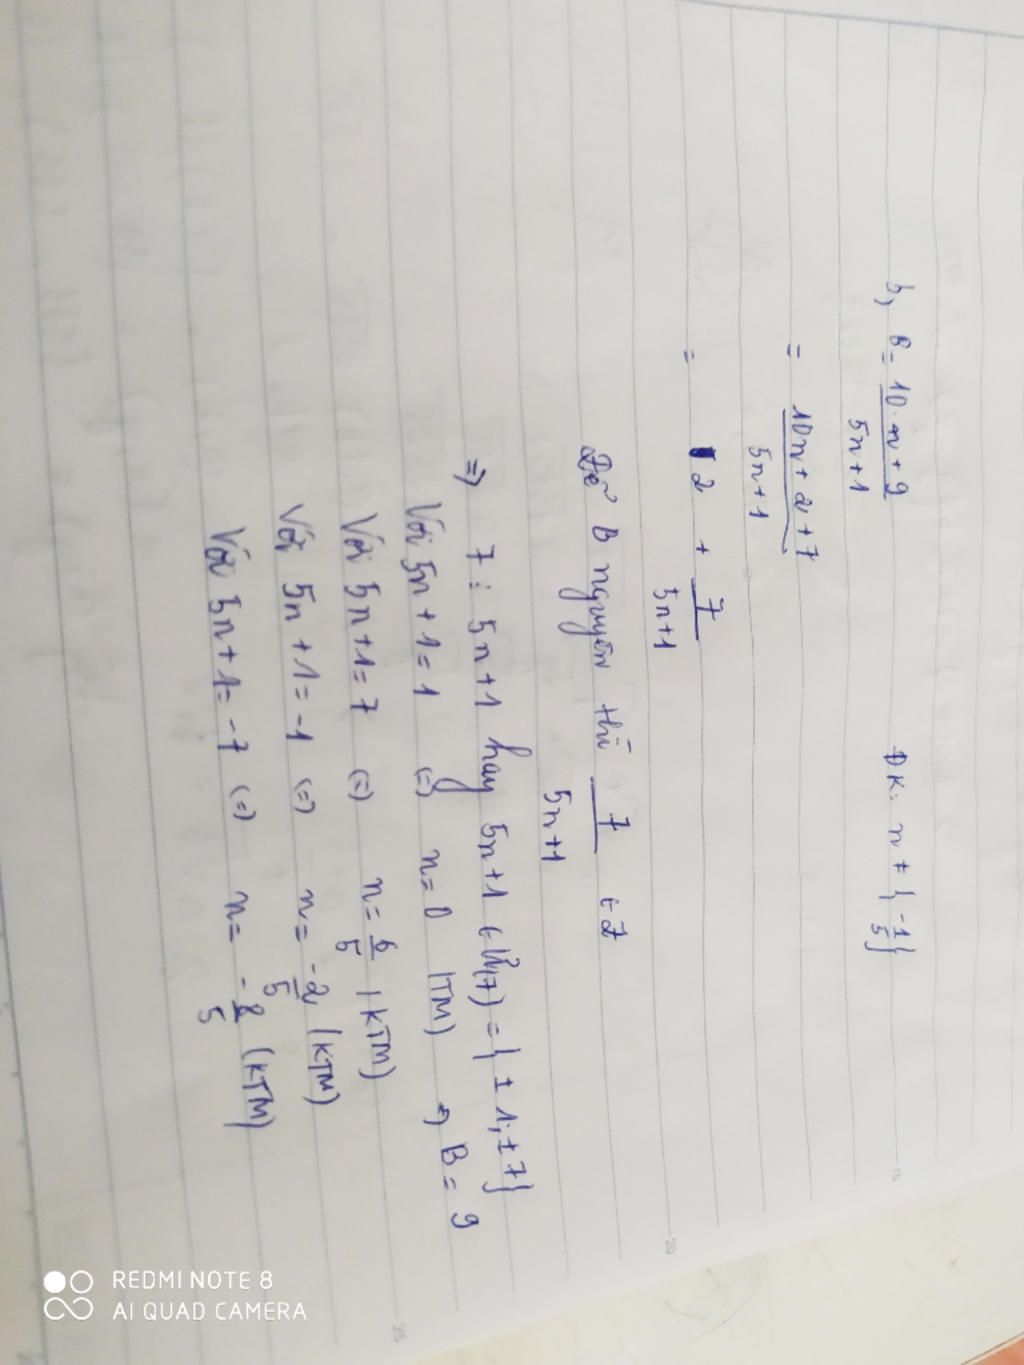 b, B = 10n+9 / 5n+1 ĐK: n ≠ { -1/5 }
= 10n+2+7 / 5n+1
= 2 + 7 / 5n+1
Để B nguyên thì 7 / 5n+1 ∈ Z
=> 7 ⋮ 5n+1 hay 5n+1 ∈ Ư(7) = { ±1; ±7 }
Với 5n+1 = 1 (=) n = 0 (TM) => B = 9
Với 5n+1 = 7 (=) n = 6/5 (KTM)
Với 5n+1 = -1 (=) n = -2/5 (KTM)
Với 5n+1 = -7 (=) n = -8/5 (KTM)
15
20
25
REDMI NOTE 8
AI QUAD CAMERA